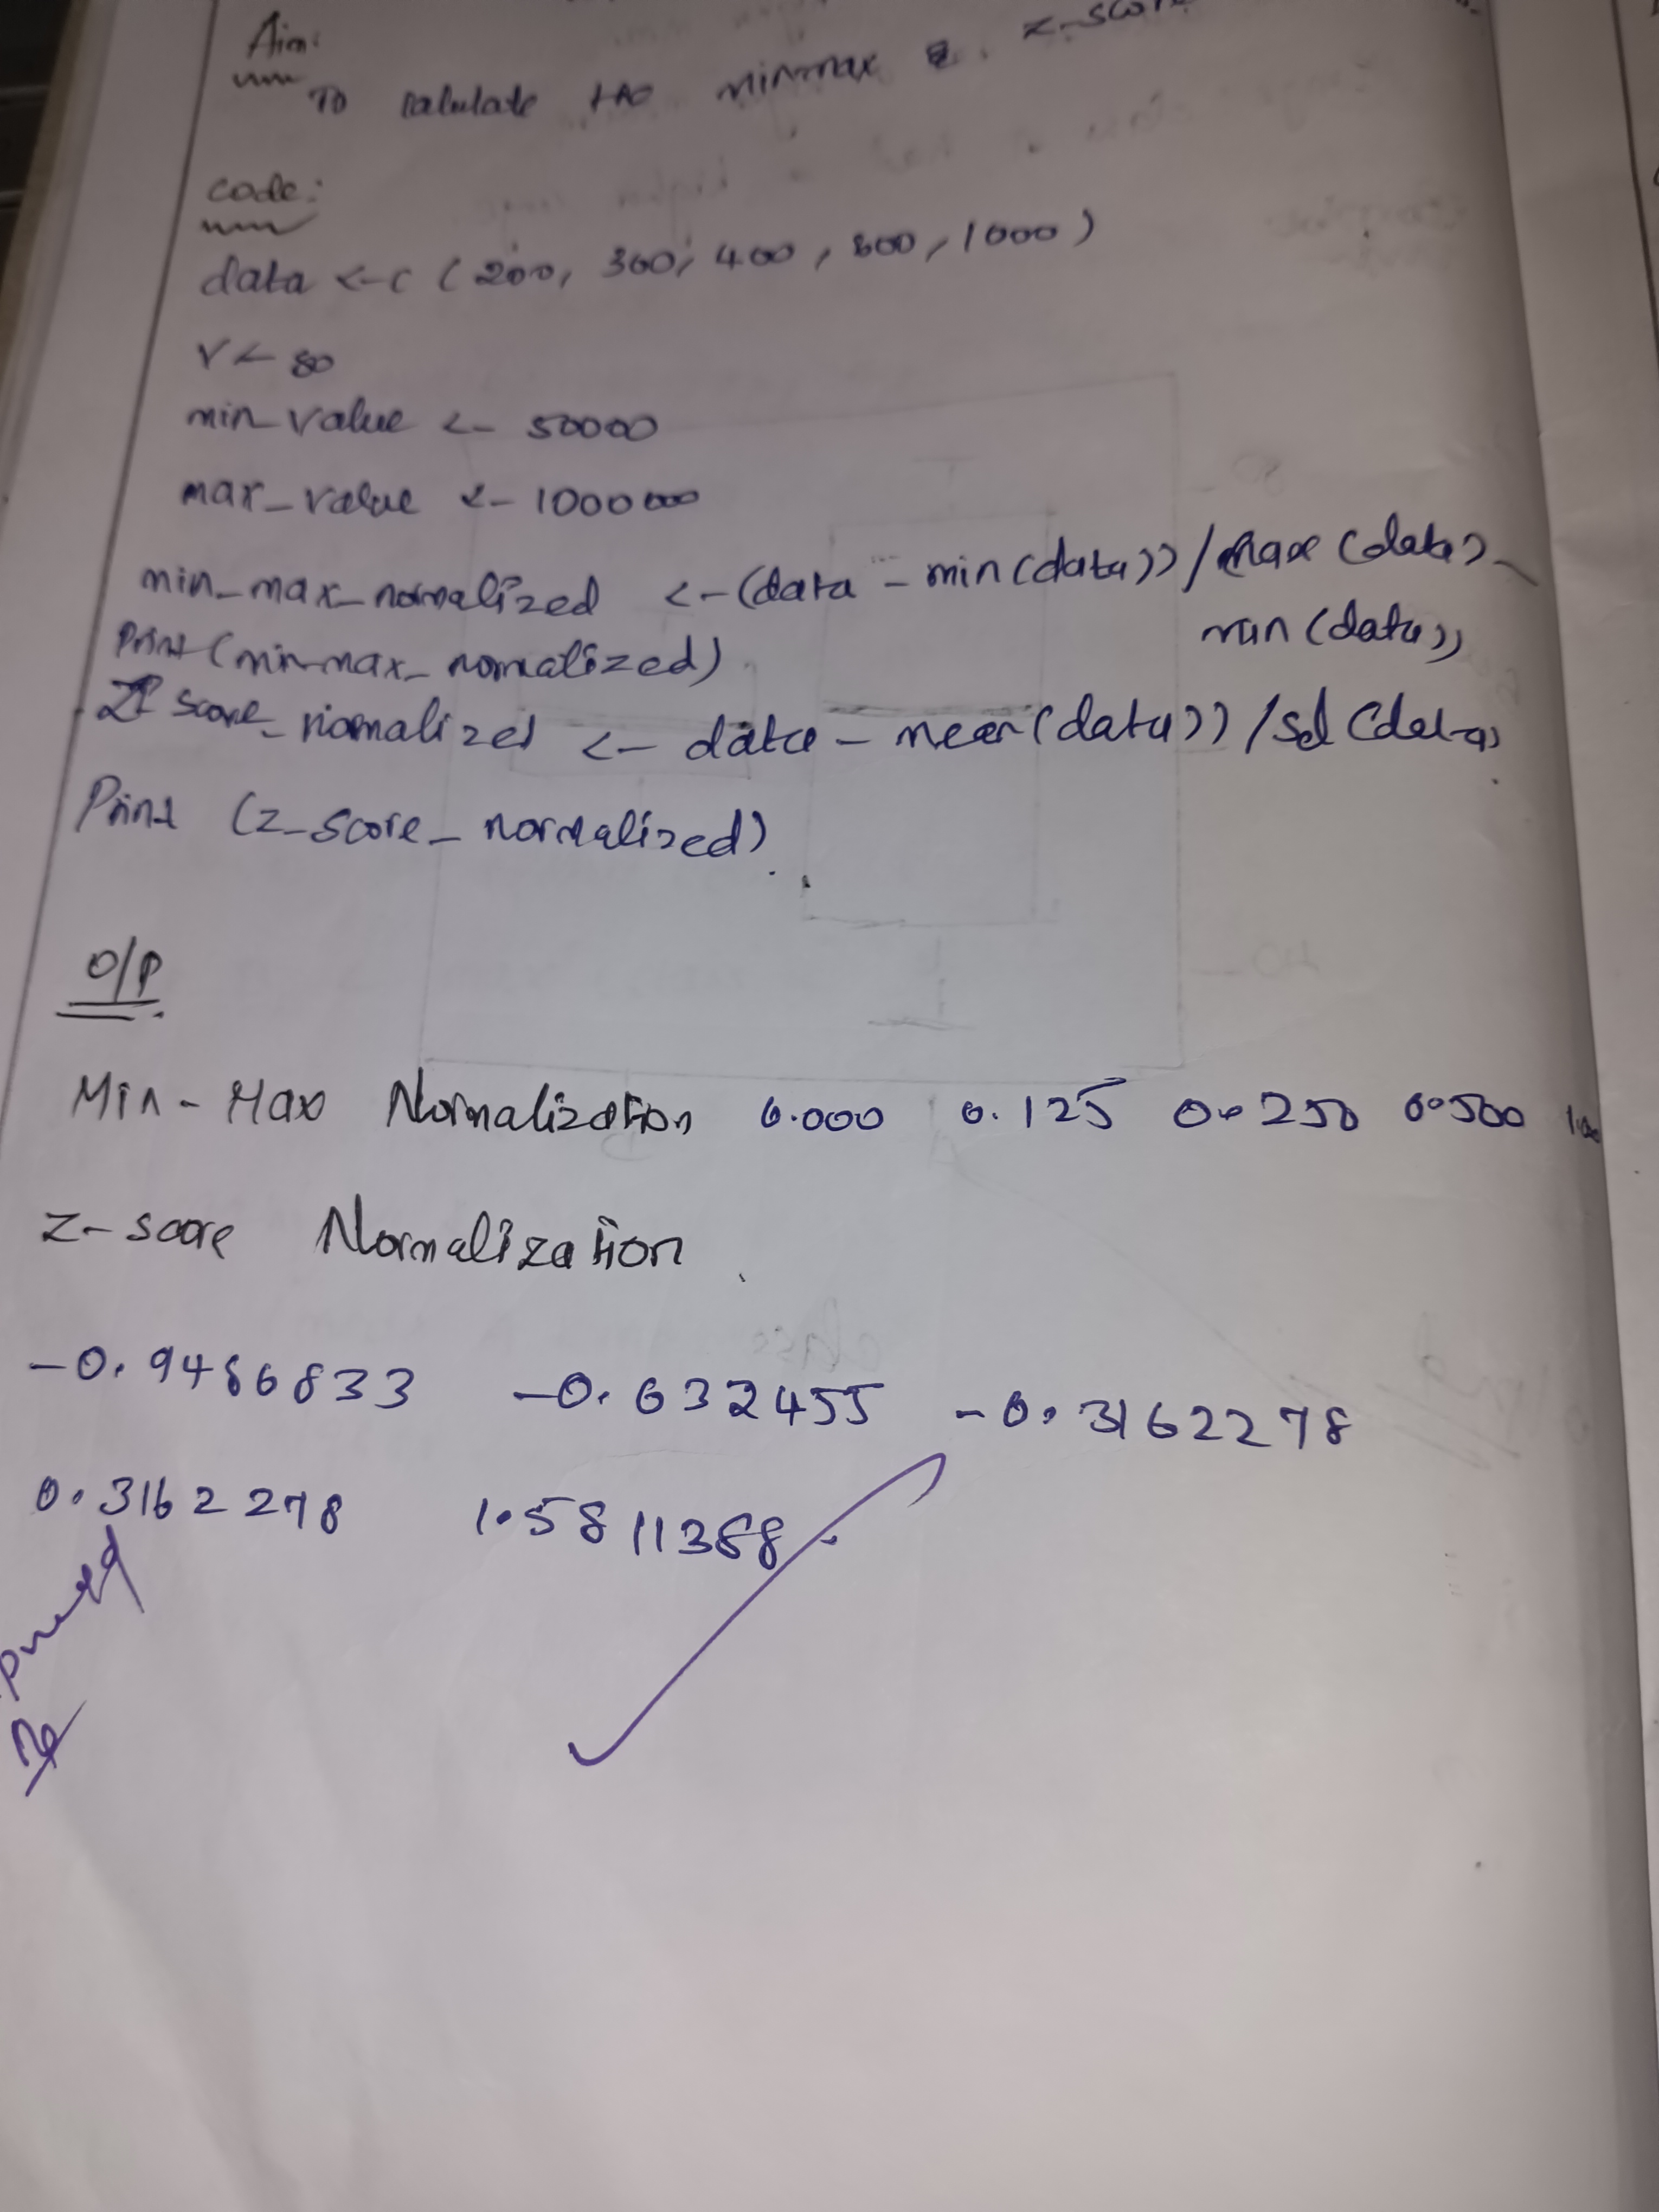 Aim:
To calulate the min-max & z-score
code:
data <-c (200, 300, 400, 600, 1000)
v <- 80
min_value <- 50000
max_value <- 1000000
min_max_normalized <-(data - min(data))/(max(data)-
min(data))
Print(min-max_normalized)
Z score_normalized <- data - mean(data))/sd(data)
Print (z_score_normalized)
O/P
Min-Max Normalization 0.000 0.125 0.250 0.500 1.000
Z-score Normalization
-0.9486833 -0.632455 -0.3162278
0.3162278 1.5811388